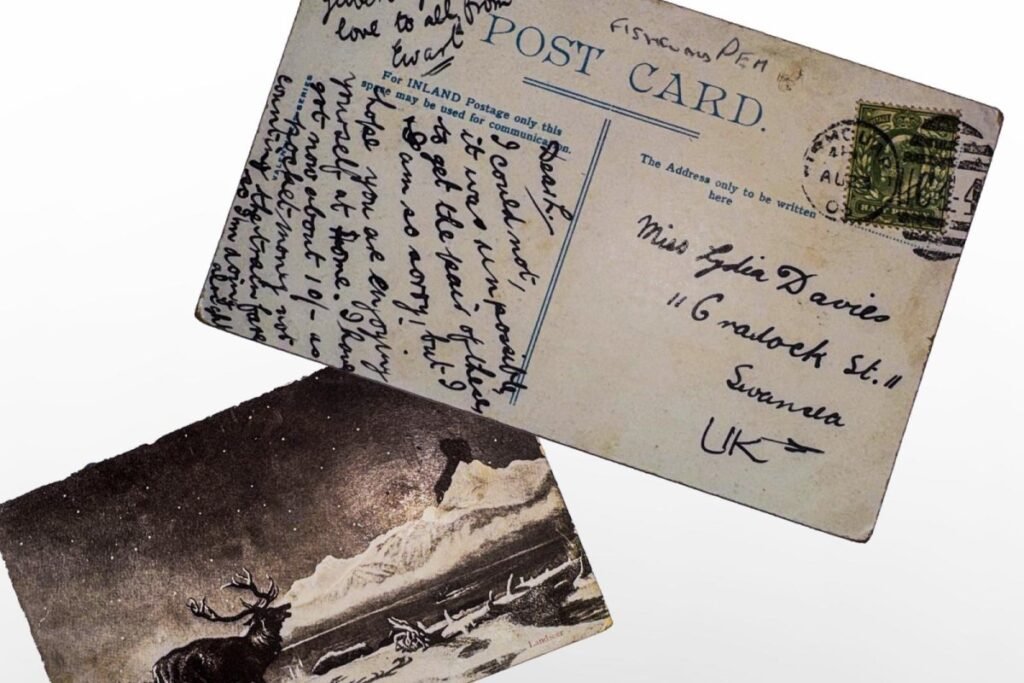 FISHGUARD PEM
POST CARD.
For INLAND Postage only this
space may be used for communication.
The Address only to be written
here
Dear L.
I could not,
it was impossible
to get the pair of
I am so sorry! but I
hope you are enjoying
yourself at Home. I have
got now about 10/- as
pocket-money not
counting the train fare
so I'm doing
alright
love to all from
Ewart
Miss Lydia Davies
11 Cradock St. 11
Swansea
UK
Landseer